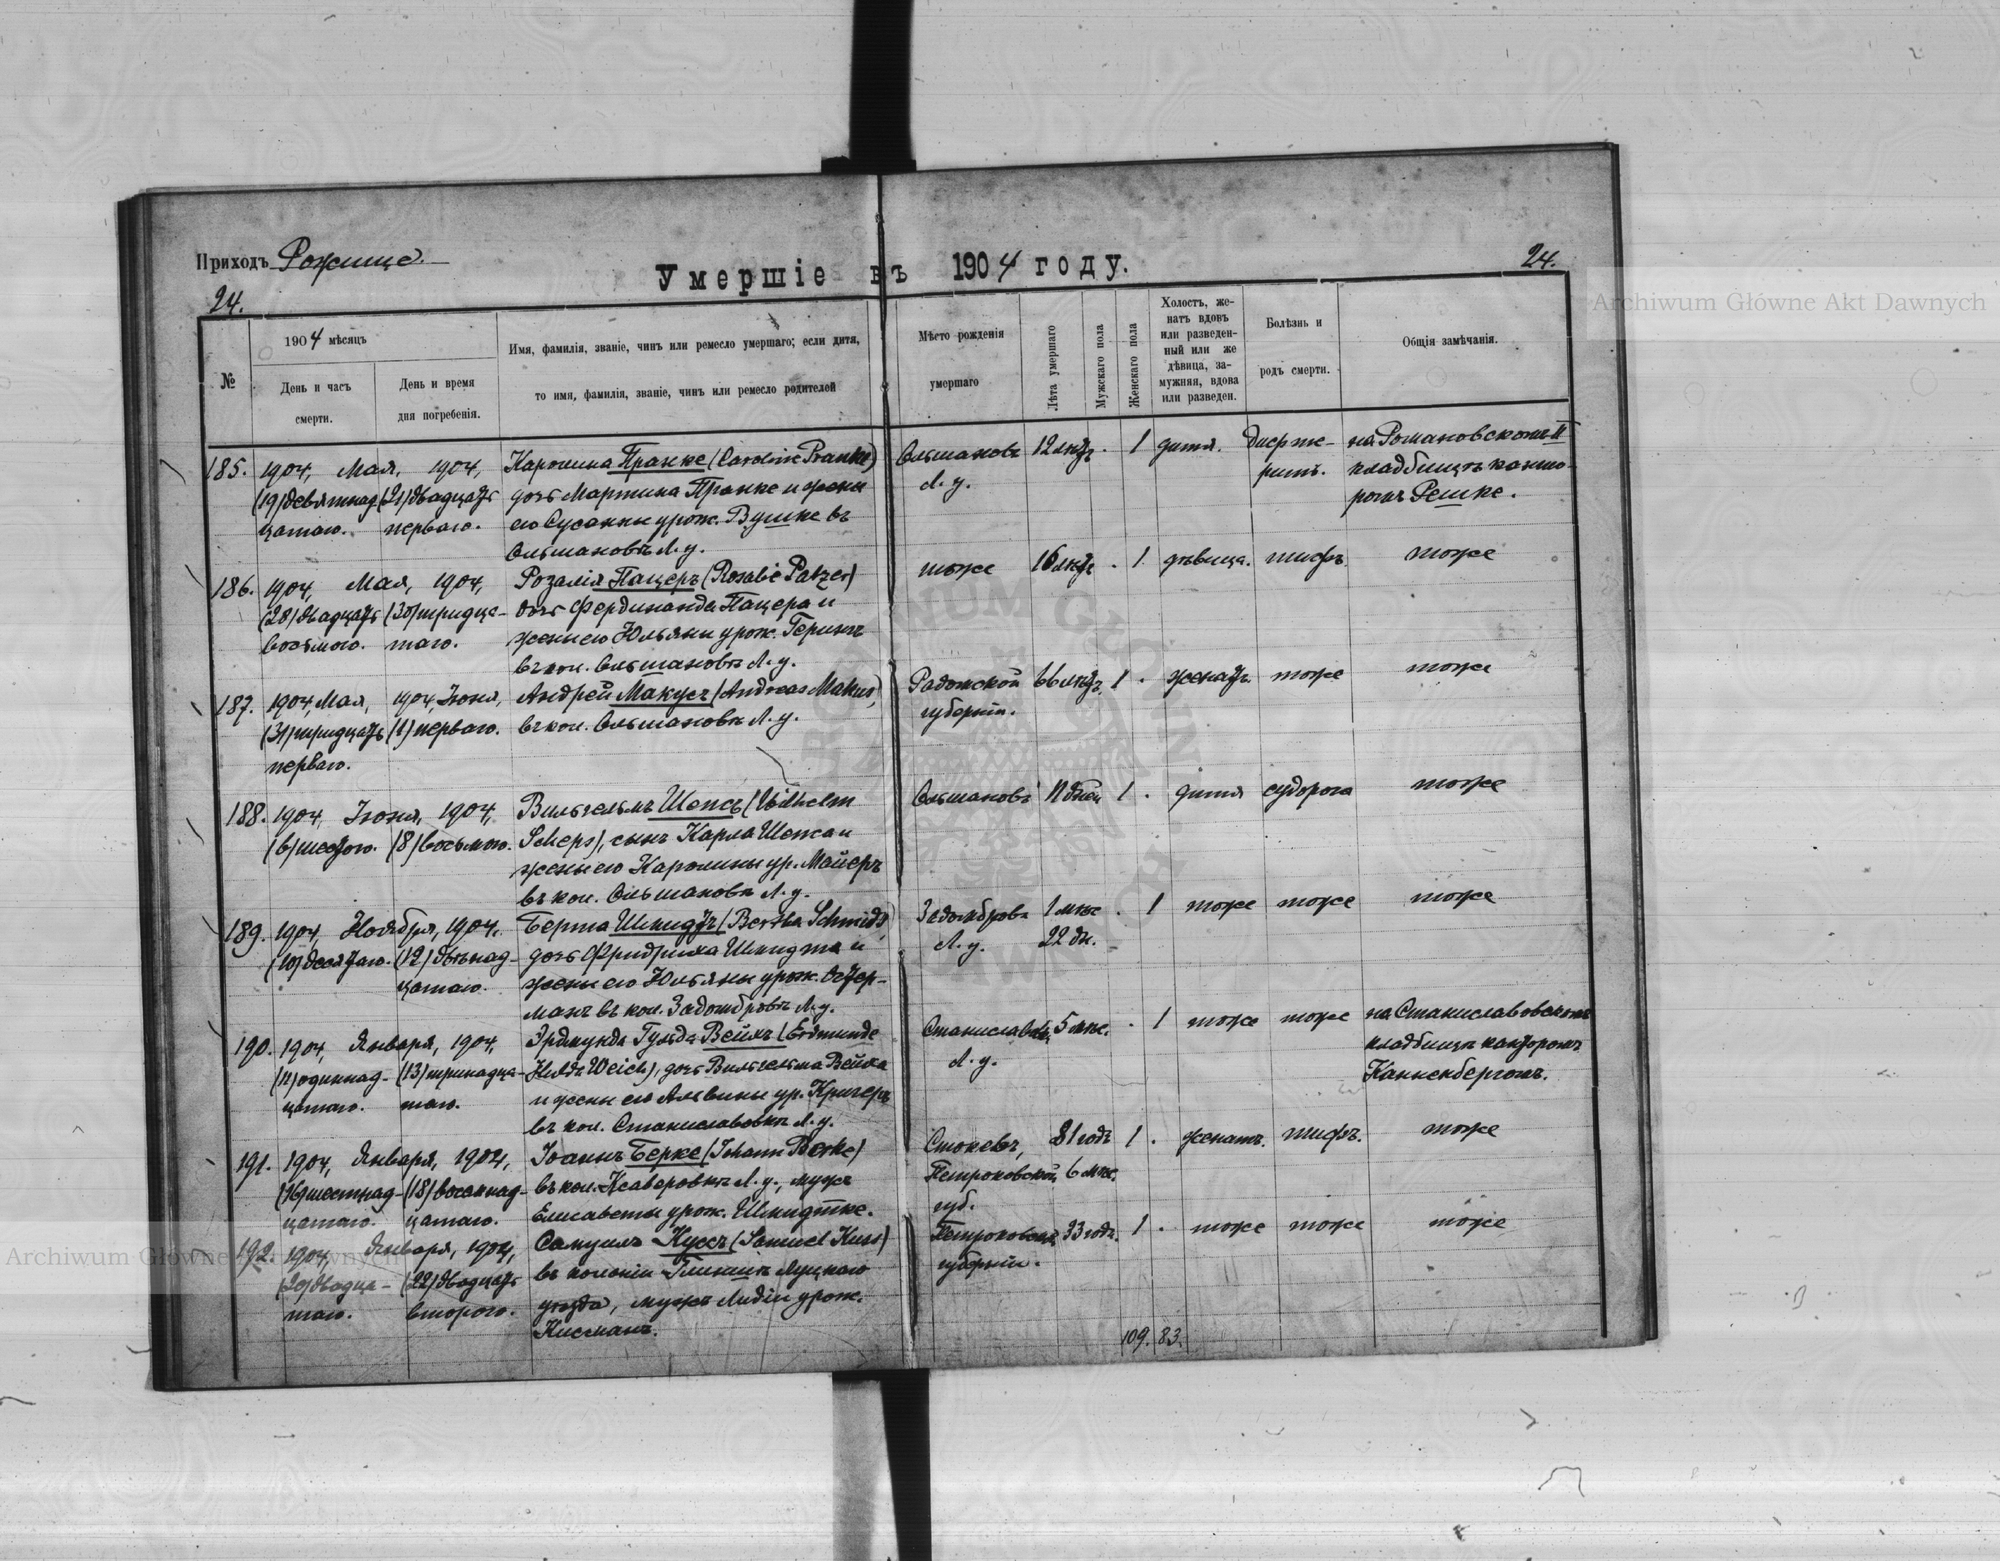 Приходъ Рожище.
Умершіе въ 1904 году.
24.
24.
№
1904 мѣсяцъ
День и часъ
смерти.
День и время
дня погребенія.
Имя, фамилія, званіе, чинъ или ремесло умершаго; если дитя,
то имя, фамилія, званіе, чинъ или ремесло родителей
Мѣсто рожденія
умершаго
Лѣта умершаго
Мужскаго пола
Женскаго пола
Холостъ, же-
натъ вдовъ
или разведен-
ный или же
дѣвица, за-
мужняя, вдова
или разведен.
Болѣзнь и
родъ смерти.
Общія замѣчанія.
185. 1904, Мая, 1904, Каролина Пранке (Caroline Pranke) Ольшановъ 12 лѣтъ . 1 дитя. Дифте- на Романовскомъ II
(19) девятнад- (21) двадцать дочь Мартина Пранке и жены Л. у. ритъ. кладбищѣ канто-
цатаго. перваго. его Сусанны урож. Вушке въ ромъ Решке.
Ольшановкѣ Л. у.
186. 1904, Мая, 1904, Розалія Пацеръ (Rosalie Patzer) тоже 16 лѣтъ . 1. дѣвица. тифъ. тоже
(28) двадцать (30) тридца- дочь Фердинанда Пацера и
восьмого. таго. жены его Юльяны урож. Геринъ
въ кол. Ольшановкѣ Л. у.
187. 1904, Мая, 1904, Іюня, Андрей Макусъ (Andreas Makus), Радомской 66 лѣтъ 1 . женатъ. тоже тоже
(31) тридцать (1) перваго. въ кол. Ольшановкѣ Л. у. губерніи.
перваго.
188. 1904, Іюня, 1904, Вильгельмъ Шепсъ (Wilhelm Ольшановъ 11 дней 1 . дитя судорога тоже
(6) шестого. (8) восьмого. Scheps), сынъ Карла Шепса и
жены его Каролины ур. Майеръ
въ кол. Ольшановкѣ Л. у.
189. 1904, Ноября, 1904, Берта Шмидтъ (Bertha Schmidt) 1 мѣс. . 1 тоже тоже тоже
(10) десятаго. (12) двѣнад- дочь Фридриха Шмидта и Л. у. 22 дн.
цатаго. жены его Юльяны урож.
манъ въ кол. Л. у.
190. 1904, Января, 1904, Эрдмунда Гульда Вейхъ (Erdmunde 5 мѣс. . 1 тоже тоже на Станиславовскомъ
(11) одиннад- (13) тринадца- Hulda Weich), дочь Вильгельма Вейха Л. у. кладбищѣ канторомъ
цатаго. таго. и жены его Альвины ур. Кригеръ Канненбергомъ.
въ кол. Станиславовкѣ Л. у.
191. 1904, Января, 1904, Іоаннъ Берке (Johann Berke) 81 годъ 1 . женатъ. тифъ. тоже
(16) шестнад- (18) восемнад- въ кол. Ксаверовкѣ Л. у., мужъ Петроковской 6 мѣс.
цатаго. цатаго. Елисаветы урож. Шмидтке. губ.
192. 1904, Января, 1904, Самуилъ Куссъ (Samuel Kuss) Петроковской 33 года. 1 . тоже тоже тоже
(20) двадца- (22) двадцать въ колоніи Луцкаго губерніи.
таго. второго. уѣзда, мужъ Лидіи урож.
Кисманъ.
109. 83.
Archiwum Główne Akt Dawnych
Archiwum Główne Akt Dawnych